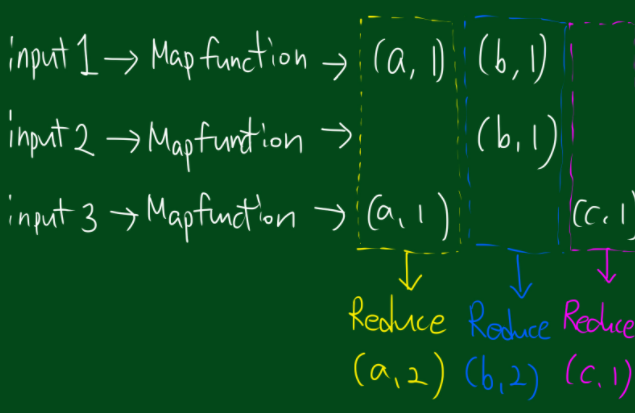 input 1 → Map function → (a, 1) (b, 1)
input 2 → Mapfuntion → (b, 1)
input 3 → Mapfunction → (a, 1) (c, 1)
Reduce Reduce Reduce
(a, 2) (b, 2) (c, 1)